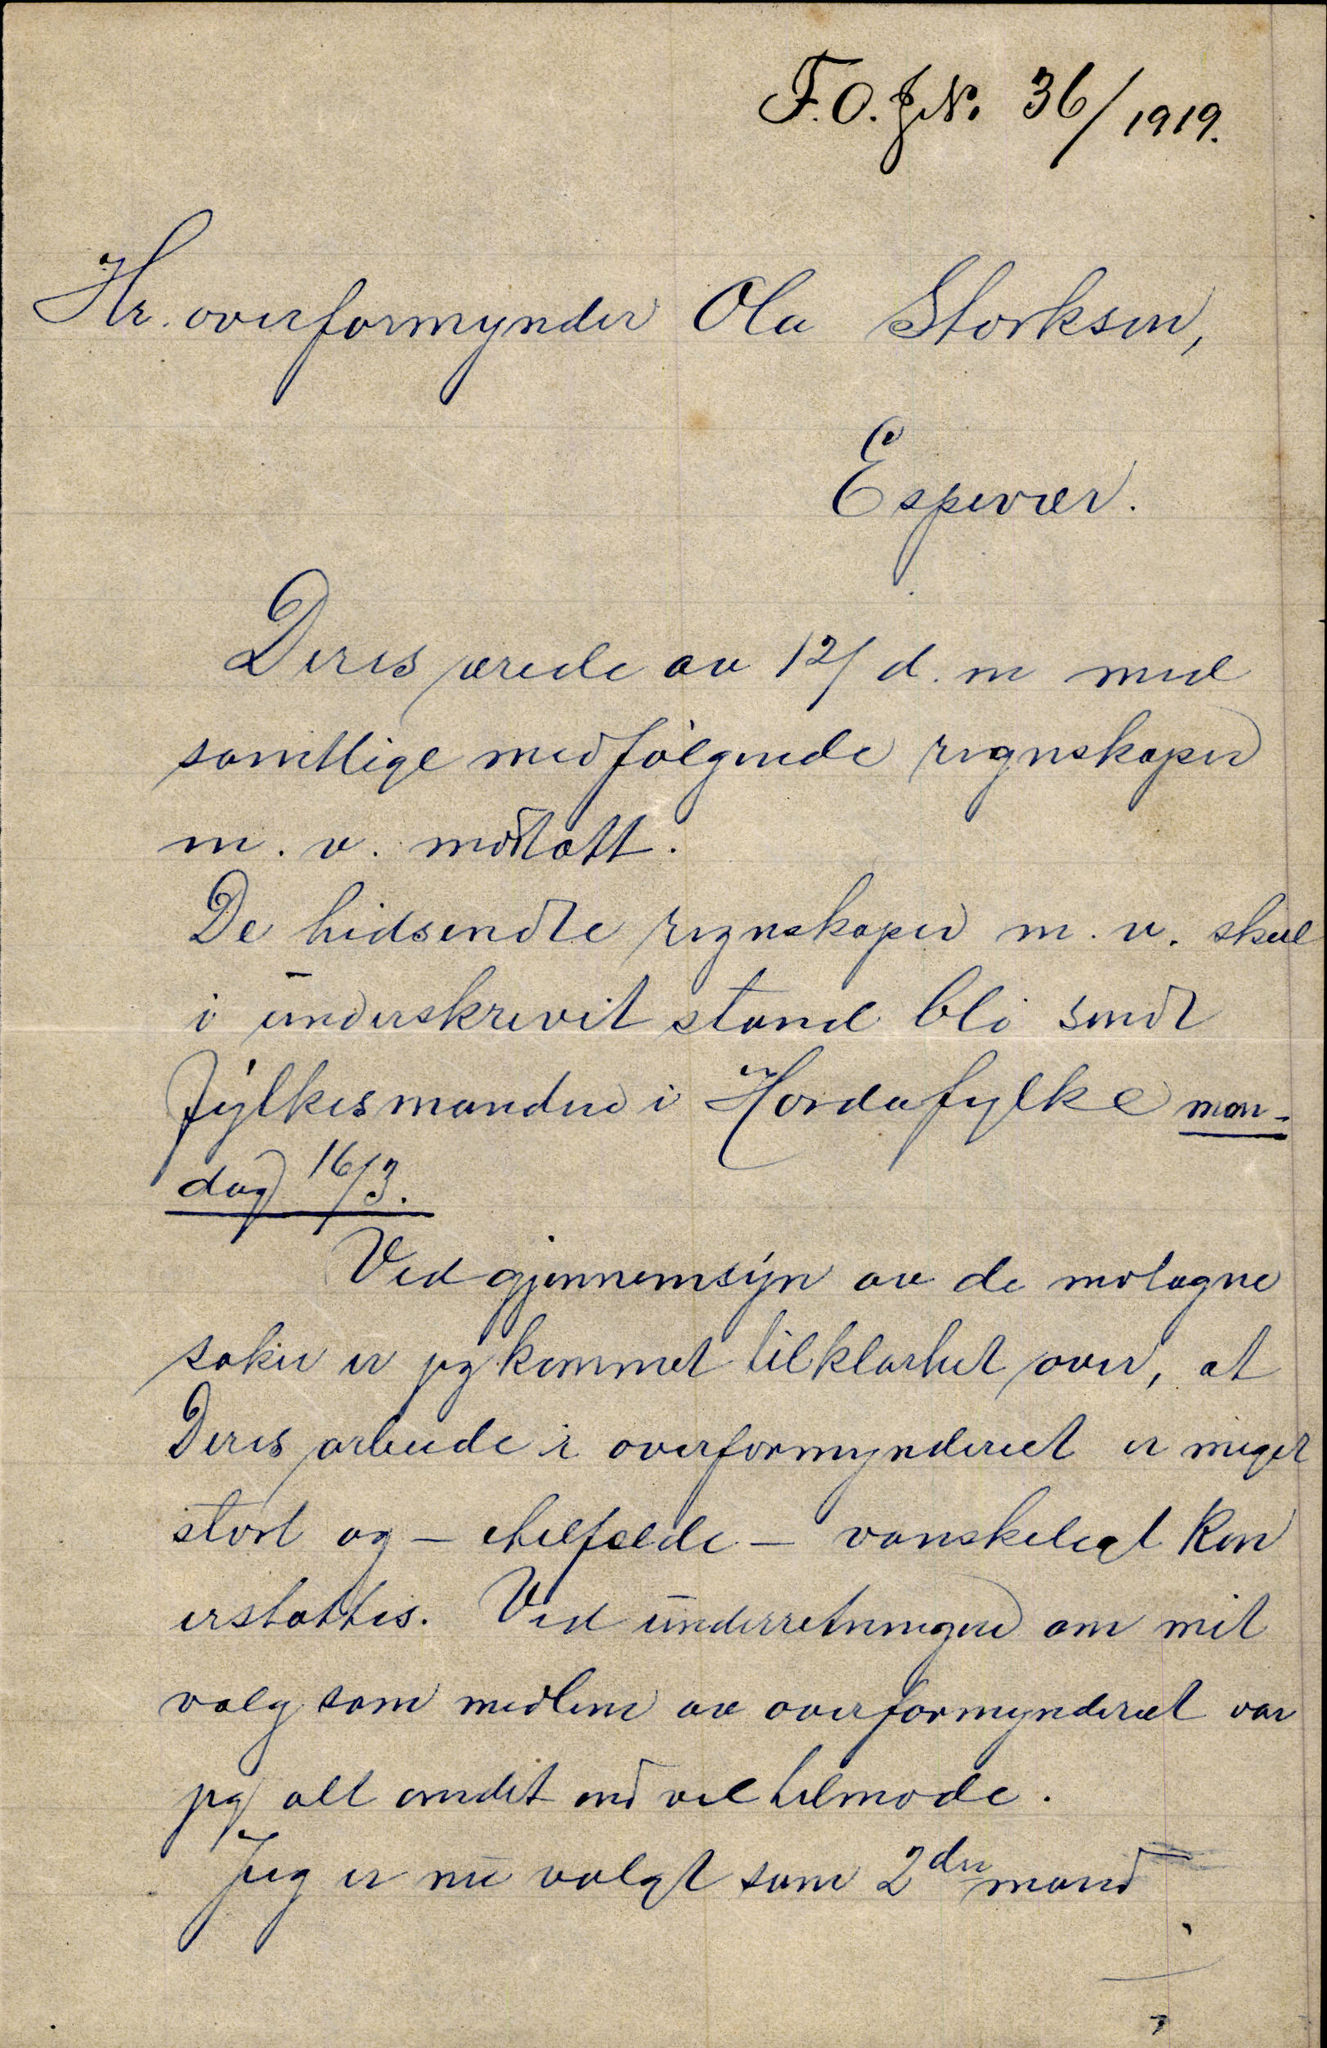 F.O. J.N. 36/1919.
Hr. overformynder Ola Storksen,
Espevær.
Deres ærede av 12/ d. m med
samtlige medfølgende regnskaper
m. v. mottatt.
De hidsendte regnskaper m. v. skal
i underskrevet stand bli sendt
Fylkesmanden i Hordafylke man-
dag 16/3.
Ved gjennemsyn av de motagne
saker er jeg kommet til klarhet over, at
Deres arbeide i overformynderiet er meget
stort og - ihelfelde - vanskelegt kan
erstattes. Ved underretningen om mit
valg som medlem av overformynderiet var
jeg alt andet end vel tilmode.
Jeg er nu valgt som 2den mand